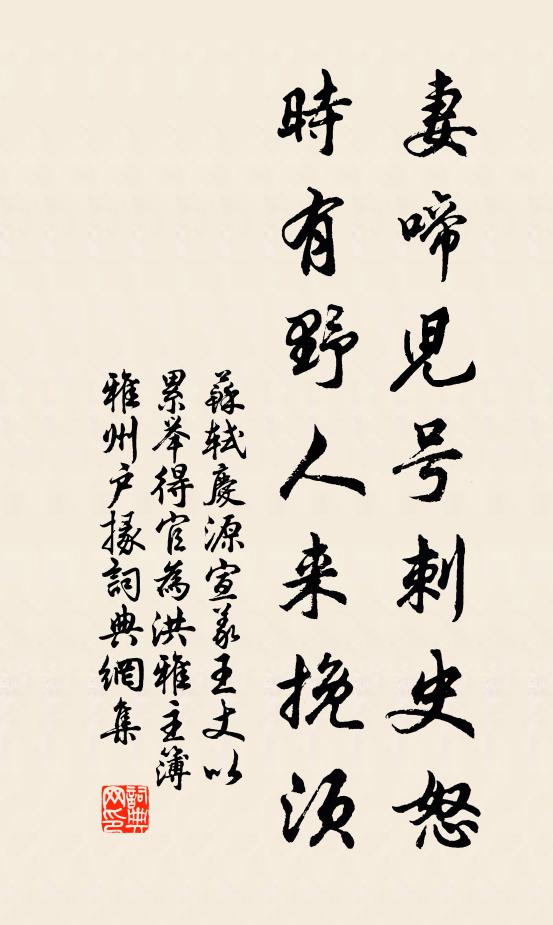 妻啼児号刺史怒
時有野人来挽須
蘇軾慶源宣義王丈以
累举得官為洪雅主簿
雅州户掾詞典網集
詞典网印